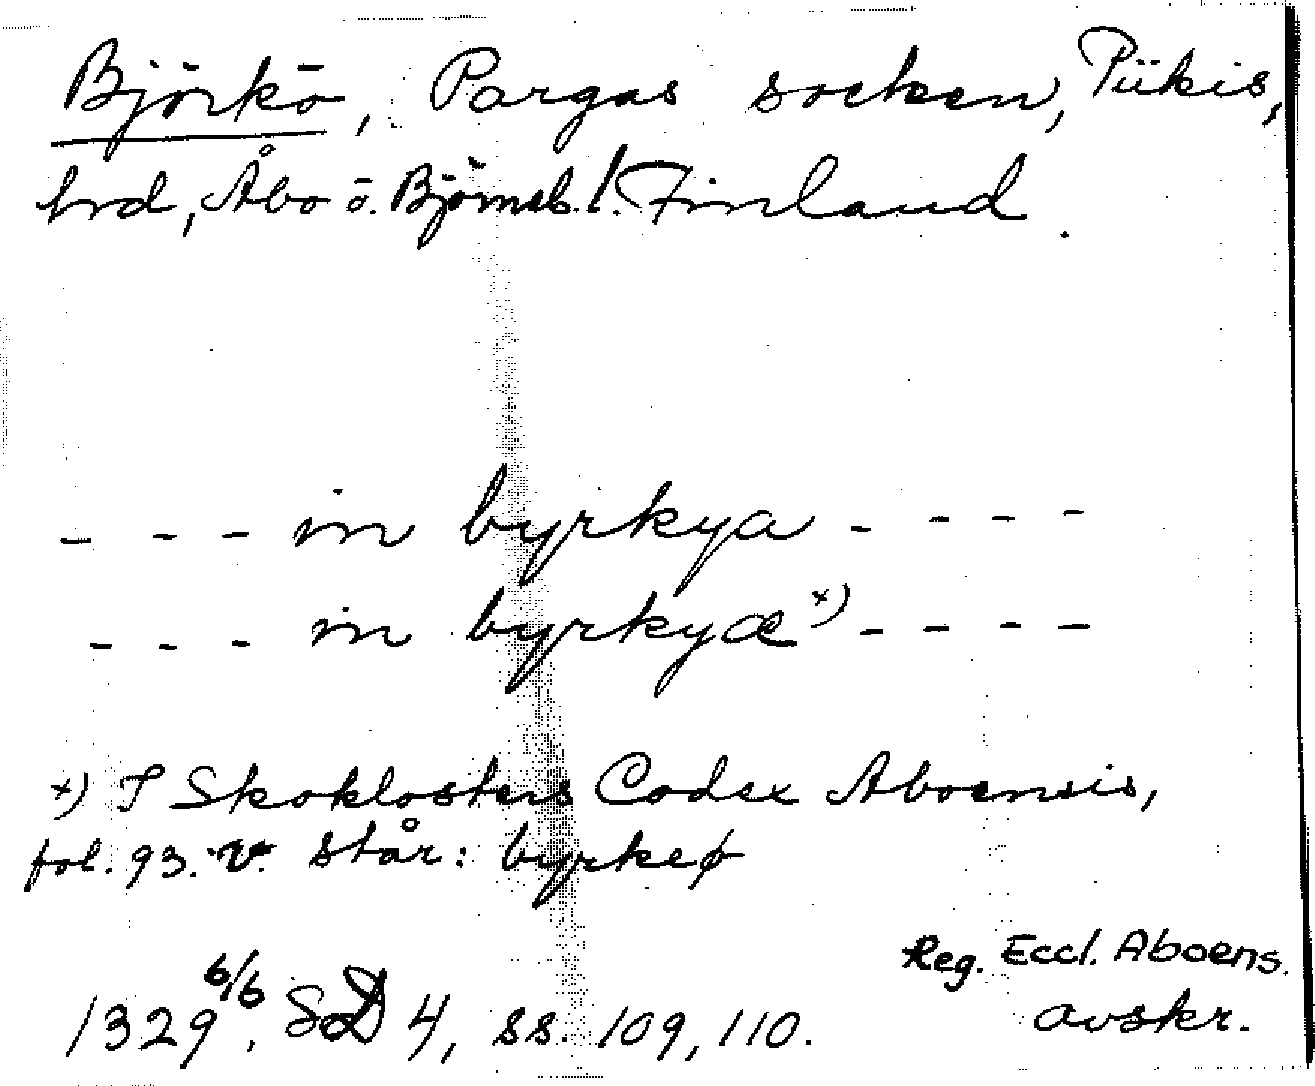 Björkö, Pargas socken, Piikis,
hrd, Åbo ö. Björneb. l. Finland.
- - - in byrkya - - - -
- - - in byrkyæ x) - - - -
x) I Skoklosters Codex Aboensis,
fol. 93. v. står: byrkeø
1329 6/6, SD 4, ss. 109, 110.
Reg. Eccl. Aboens.
avskr.